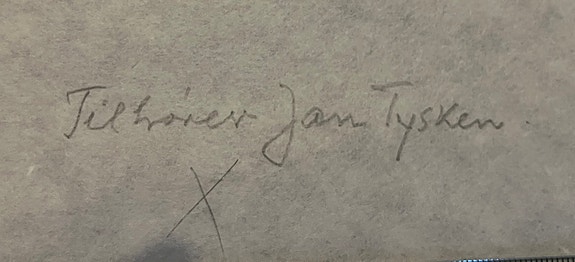 Tilhører Jan Tysken.
X